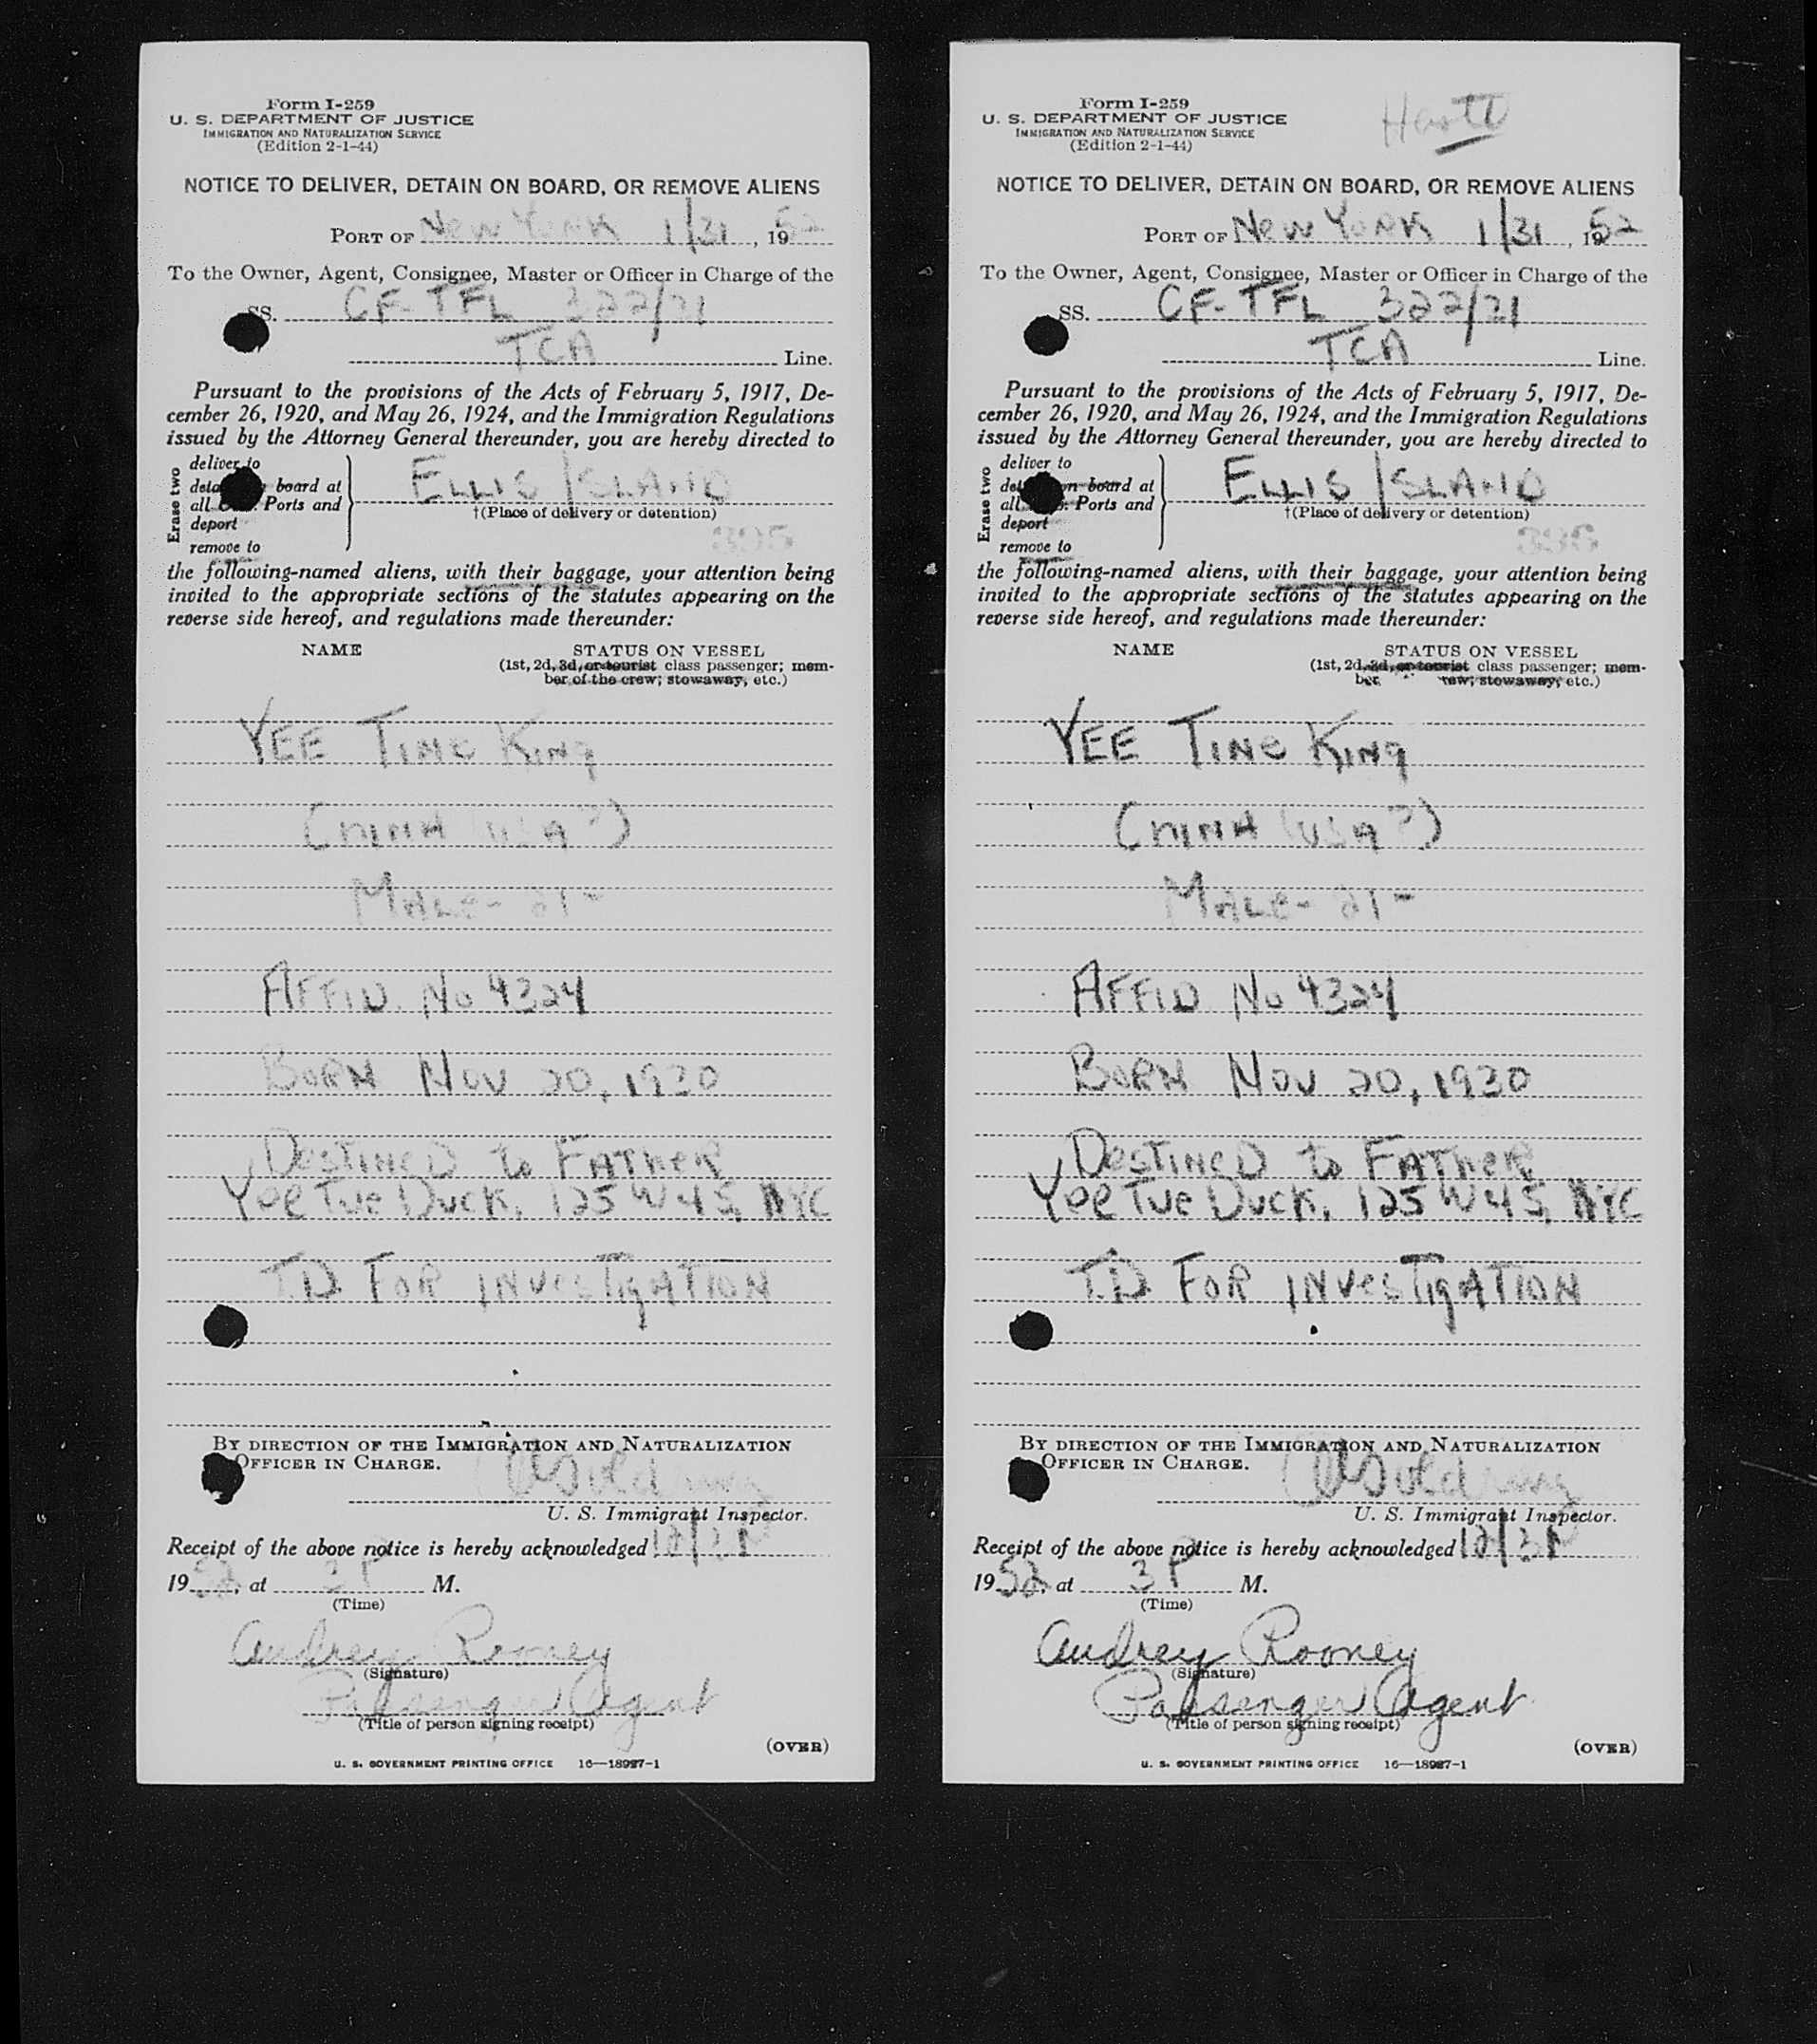 Form I-259
U. S. DEPARTMENT OF JUSTICE
IMMIGRATION AND NATURALIZATION SERVICE
(Edition 2-1-44)
NOTICE TO DELIVER, DETAIN ON BOARD, OR REMOVE ALIENS
PORT OF New York 1/31, 1952
To the Owner, Agent, Consignee, Master or Officer in Charge of the
SS. CF-TFL 322/31
TCA Line.
Pursuant to the provisions of the Acts of February 5, 1917, De-
cember 26, 1920, and May 26, 1924, and the Immigration Regulations
issued by the Attorney General thereunder, you are hereby directed to
Erase two
deliver to
board at
all Ports and
deport
remove to
ELLIS ISLAND
†(Place of delivery or detention)
395
the following-named aliens, with their baggage, your attention being
invited to the appropriate sections of the statutes appearing on the
reverse side hereof, and regulations made thereunder:
NAME STATUS ON VESSEL
(1st, 2d, 3d, or tourist class passenger; mem-
ber of the crew; stowaway, etc.)
YEE TING KING
(USA?)
MALE - 21 -
AFFID. No 4324
BORN NOV 20, 1930
DESTINED to FATHER
Yee Tue Duck, 125 W 45, NYC
T.D. FOR INVESTIGATION
BY DIRECTION OF THE IMMIGRATION AND NATURALIZATION
OFFICER IN CHARGE.
U. S. Immigrant Inspector.
Receipt of the above notice is hereby acknowledged
1952, at 3 P M.
(Time)
Audrey Rooney
(Signature)
Passenger Agent
(Title of person signing receipt)
(OVER)
U. S. GOVERNMENT PRINTING OFFICE 16—18987-1
Form I-259
U. S. DEPARTMENT OF JUSTICE
IMMIGRATION AND NATURALIZATION SERVICE
(Edition 2-1-44)
NOTICE TO DELIVER, DETAIN ON BOARD, OR REMOVE ALIENS
PORT OF New York 1/31, 1952
To the Owner, Agent, Consignee, Master or Officer in Charge of the
SS. CF-TFL 322/31
TCA Line.
Pursuant to the provisions of the Acts of February 5, 1917, De-
cember 26, 1920, and May 26, 1924, and the Immigration Regulations
issued by the Attorney General thereunder, you are hereby directed to
Erase two
deliver to
on board at
all Ports and
deport
remove to
ELLIS ISLAND
†(Place of delivery or detention)
the following-named aliens, with their baggage, your attention being
invited to the appropriate sections of the statutes appearing on the
reverse side hereof, and regulations made thereunder:
NAME STATUS ON VESSEL
(1st, 2d, 3d, or tourist class passenger; mem-
ber stowaway, etc.)
YEE TING KING
(USA?)
MALE - 21 -
AFFID No 4324
BORN NOV 20, 1930
DESTINED to FATHER
Yee Tue Duck, 125 W 45, NYC
T.D. FOR INVESTIGATION
BY DIRECTION OF THE IMMIGRATION AND NATURALIZATION
OFFICER IN CHARGE.
U. S. Immigrant Inspector.
Receipt of the above notice is hereby acknowledged
1952, at 3 P M.
(Time)
Audrey Rooney
(Signature)
Passenger Agent
(Title of person signing receipt)
(OVER)
U. S. GOVERNMENT PRINTING OFFICE 16—18987-1